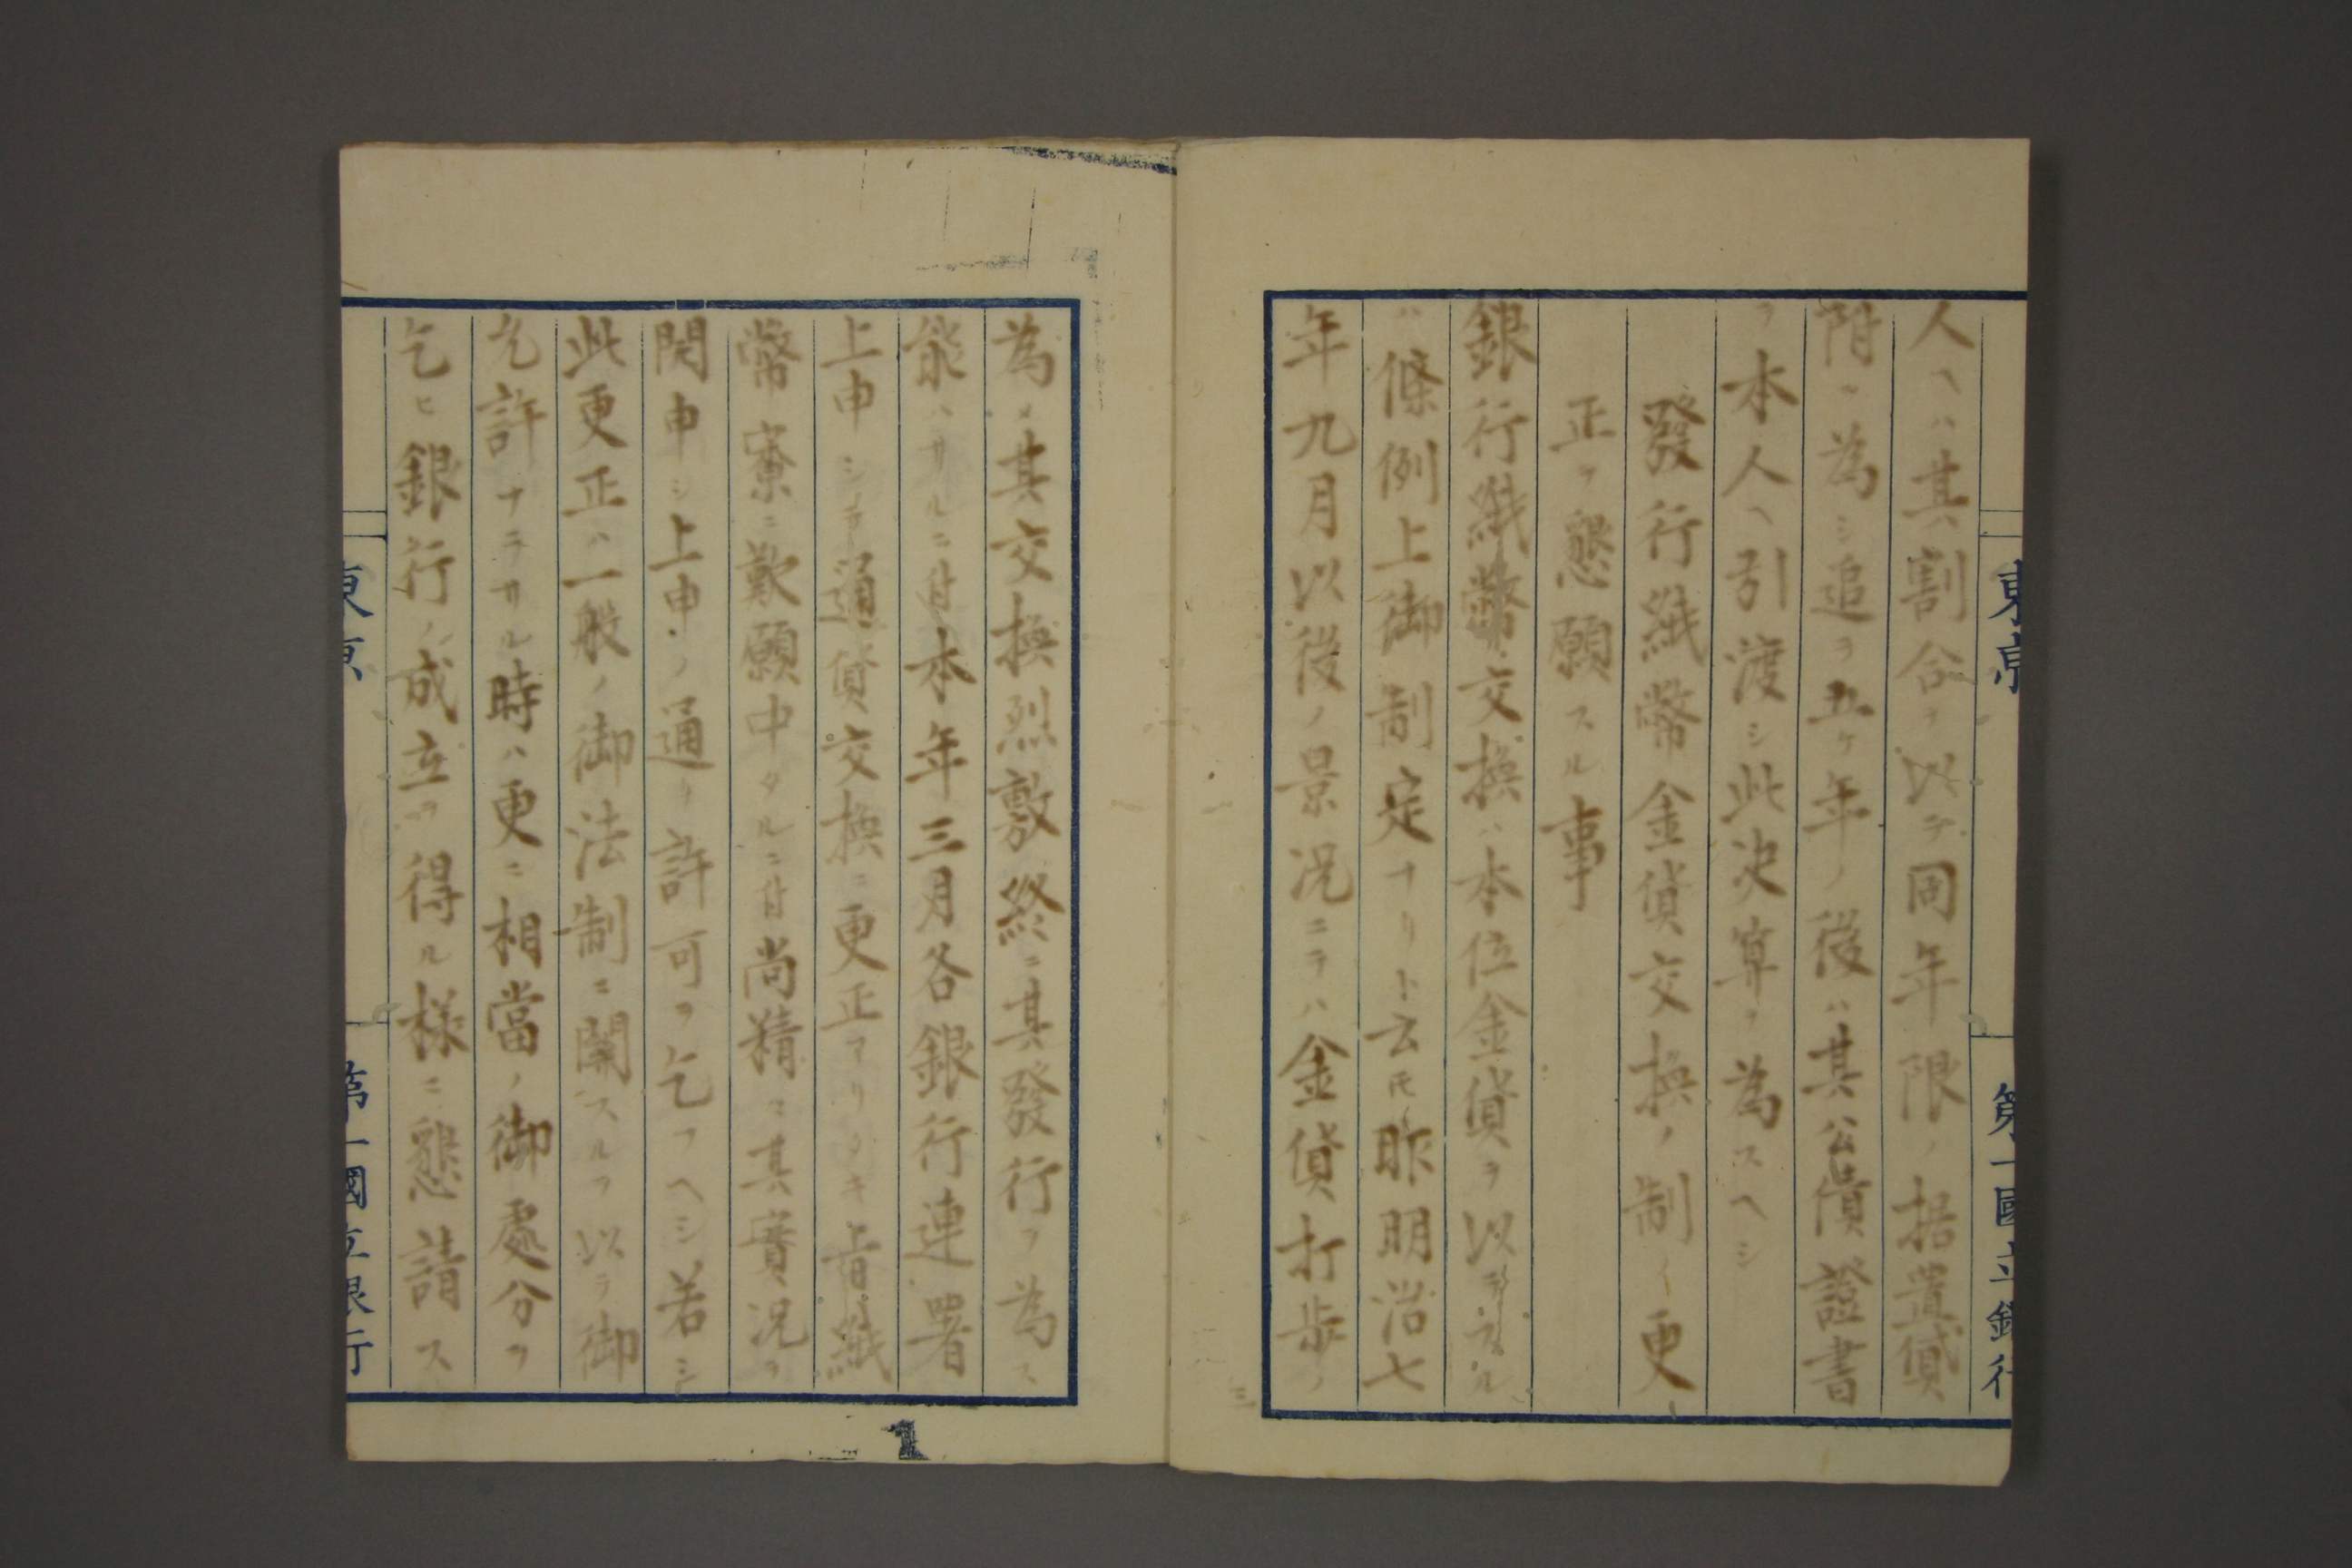 東京
第一國立銀行
人ヘハ其割合ヲ以テ同年限ノ据置貸
附ニ為シ追ヲ五ケ年ノ後ハ其公債證書
ヲ本人ヘ引渡シ此決算ヲ為スヘシ
發行紙幣金貨交換ノ制ノ更
正ヲ懇願スル事
銀行紙幣交換ハ本位金貨ヲ以テスル
ハ條例上御制定ナリト云氏昨明治七
年九月以後ノ景况ニテハ金貨打歩ノ
為メ其交換烈敷終ニ其發行ヲ為ス
能ハサルニ付本年三月各銀行連署
上申シテ通貨交換ニ更正アリタキ旨紙
幣寮ニ歎願中タルニ付尚精ニ其實况ヲ
開申シ上申ノ通リ許可ヲ乞フヘシ若シ
此更正ハ一般ノ御法制ニ關スルヲ以テ御
允許ナラサル時ハ更ニ相當ノ御處分ヲ
乞ヒ銀行ノ成立ヲ得ル様ニ懇請ス
東京
第一國立銀行
1